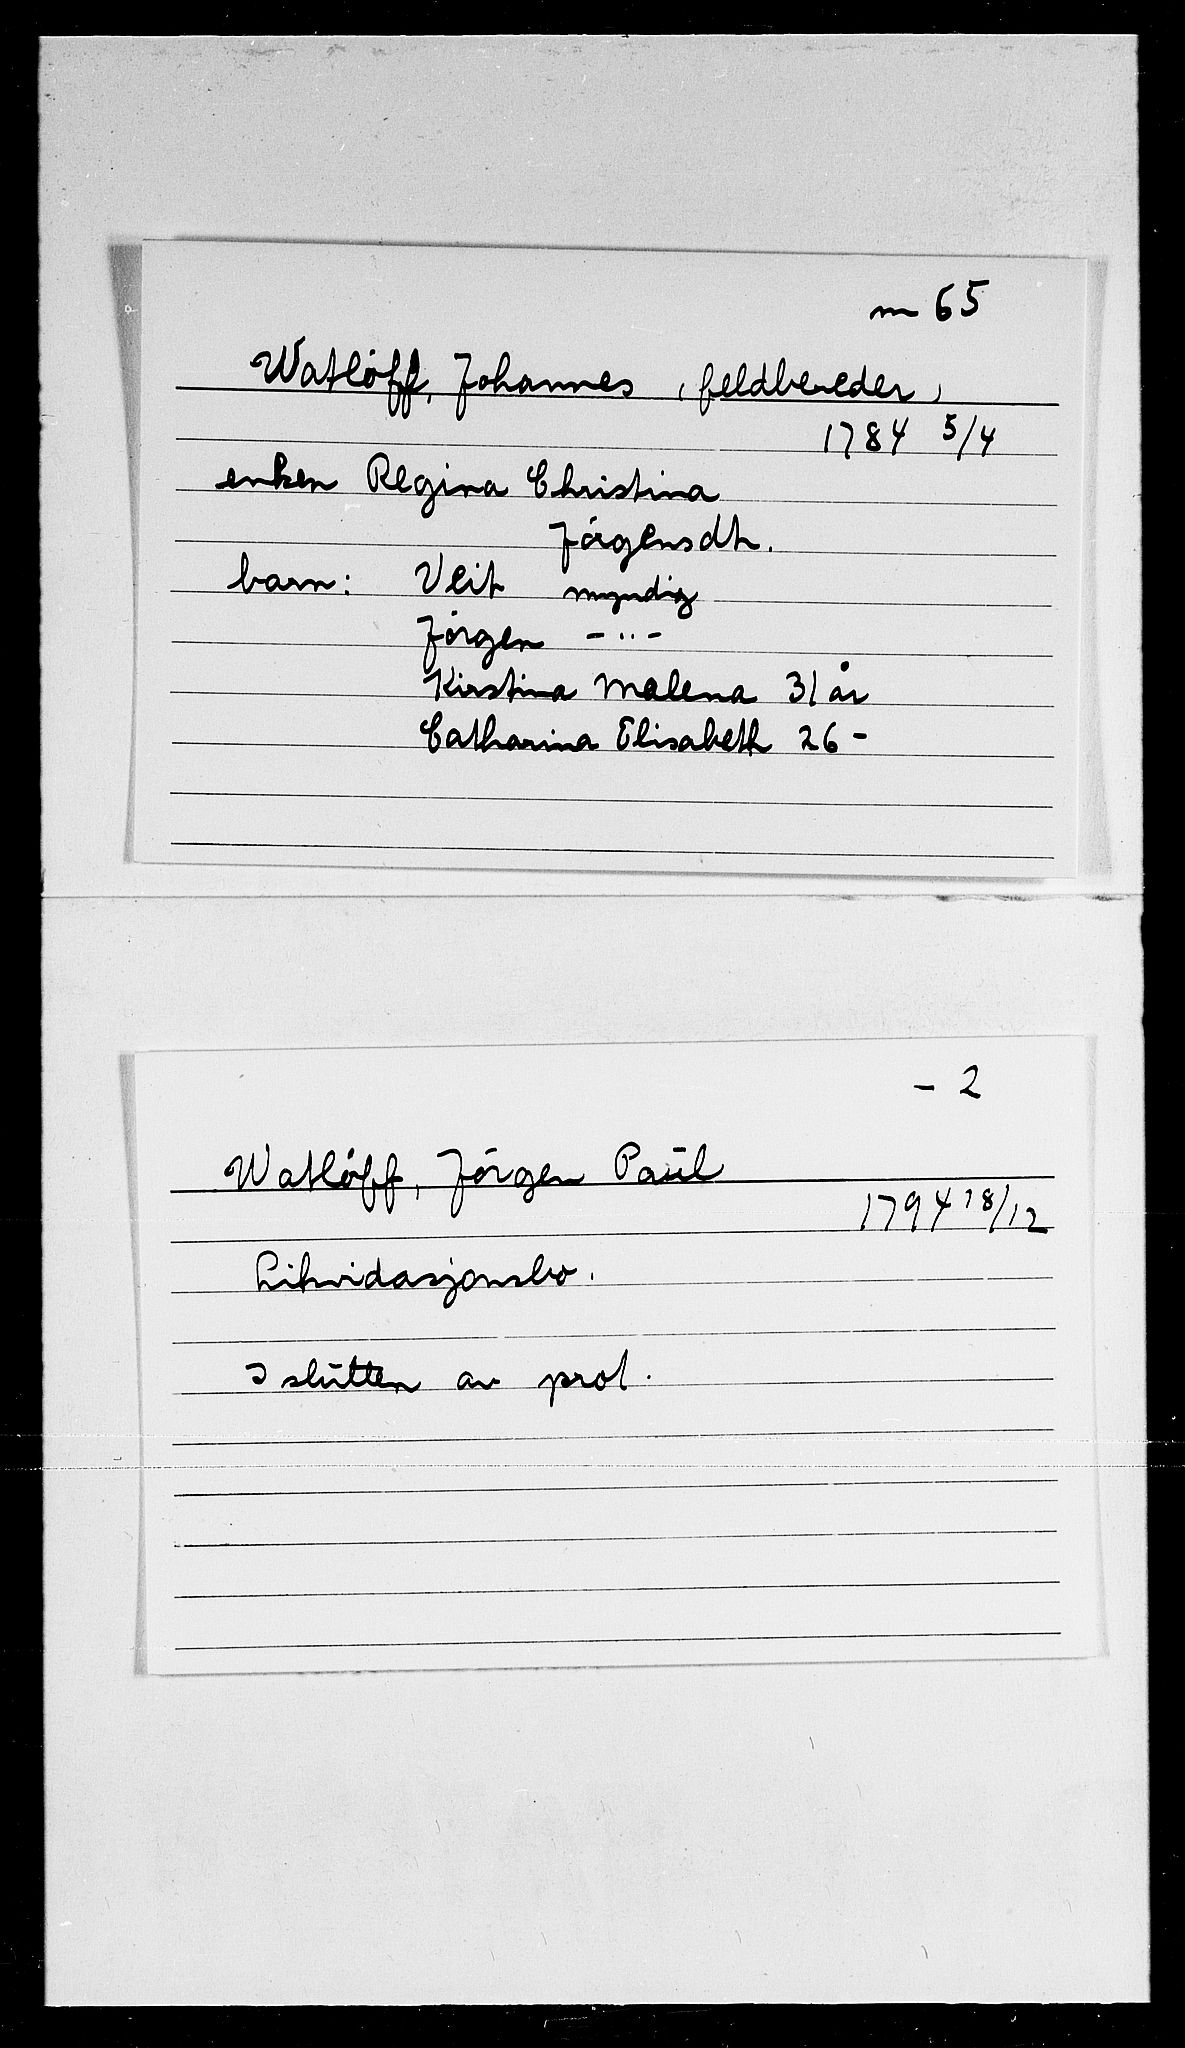 m 65
Watløff, Johannes, feldbereder,
1784 5/4
enken Regina Christina
Jörgensdtr.
barn: Veit myndig
Jörgen - " -
Kirstina Malena 31 år
Catharina Elisabeth 26 -
- 2
Watløff, Jörgen Paul
1794 18/12
Likvidasjonsbo.
I slutten av prot.